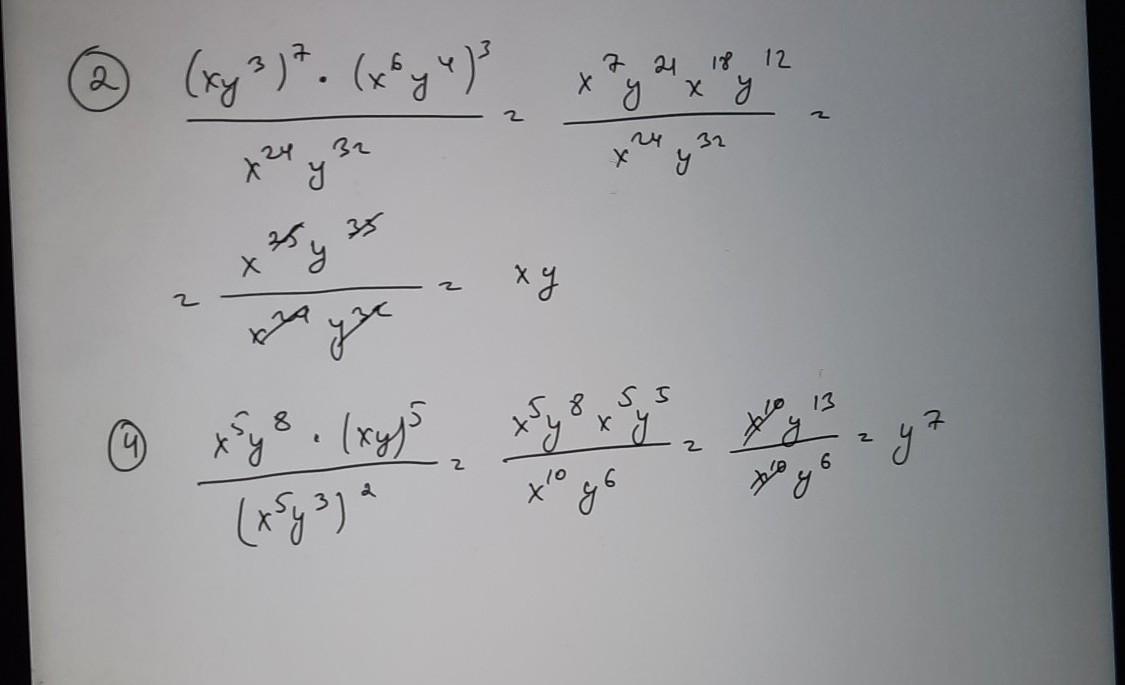 ② (xy³)⁷ · (x⁶y⁴)³ / x²⁴ y³² = x⁷y²¹x¹⁸y¹² / x²⁴ y³² =
= x²⁵y³⁵ / x²⁴ y³² = xy
④ x⁵y⁸ · (xy)⁵ / (x⁵y³)² = x⁵y⁸x⁵y⁵ / x¹⁰ y⁶ = x¹⁰y¹³ / x¹⁰y⁶ = y⁷